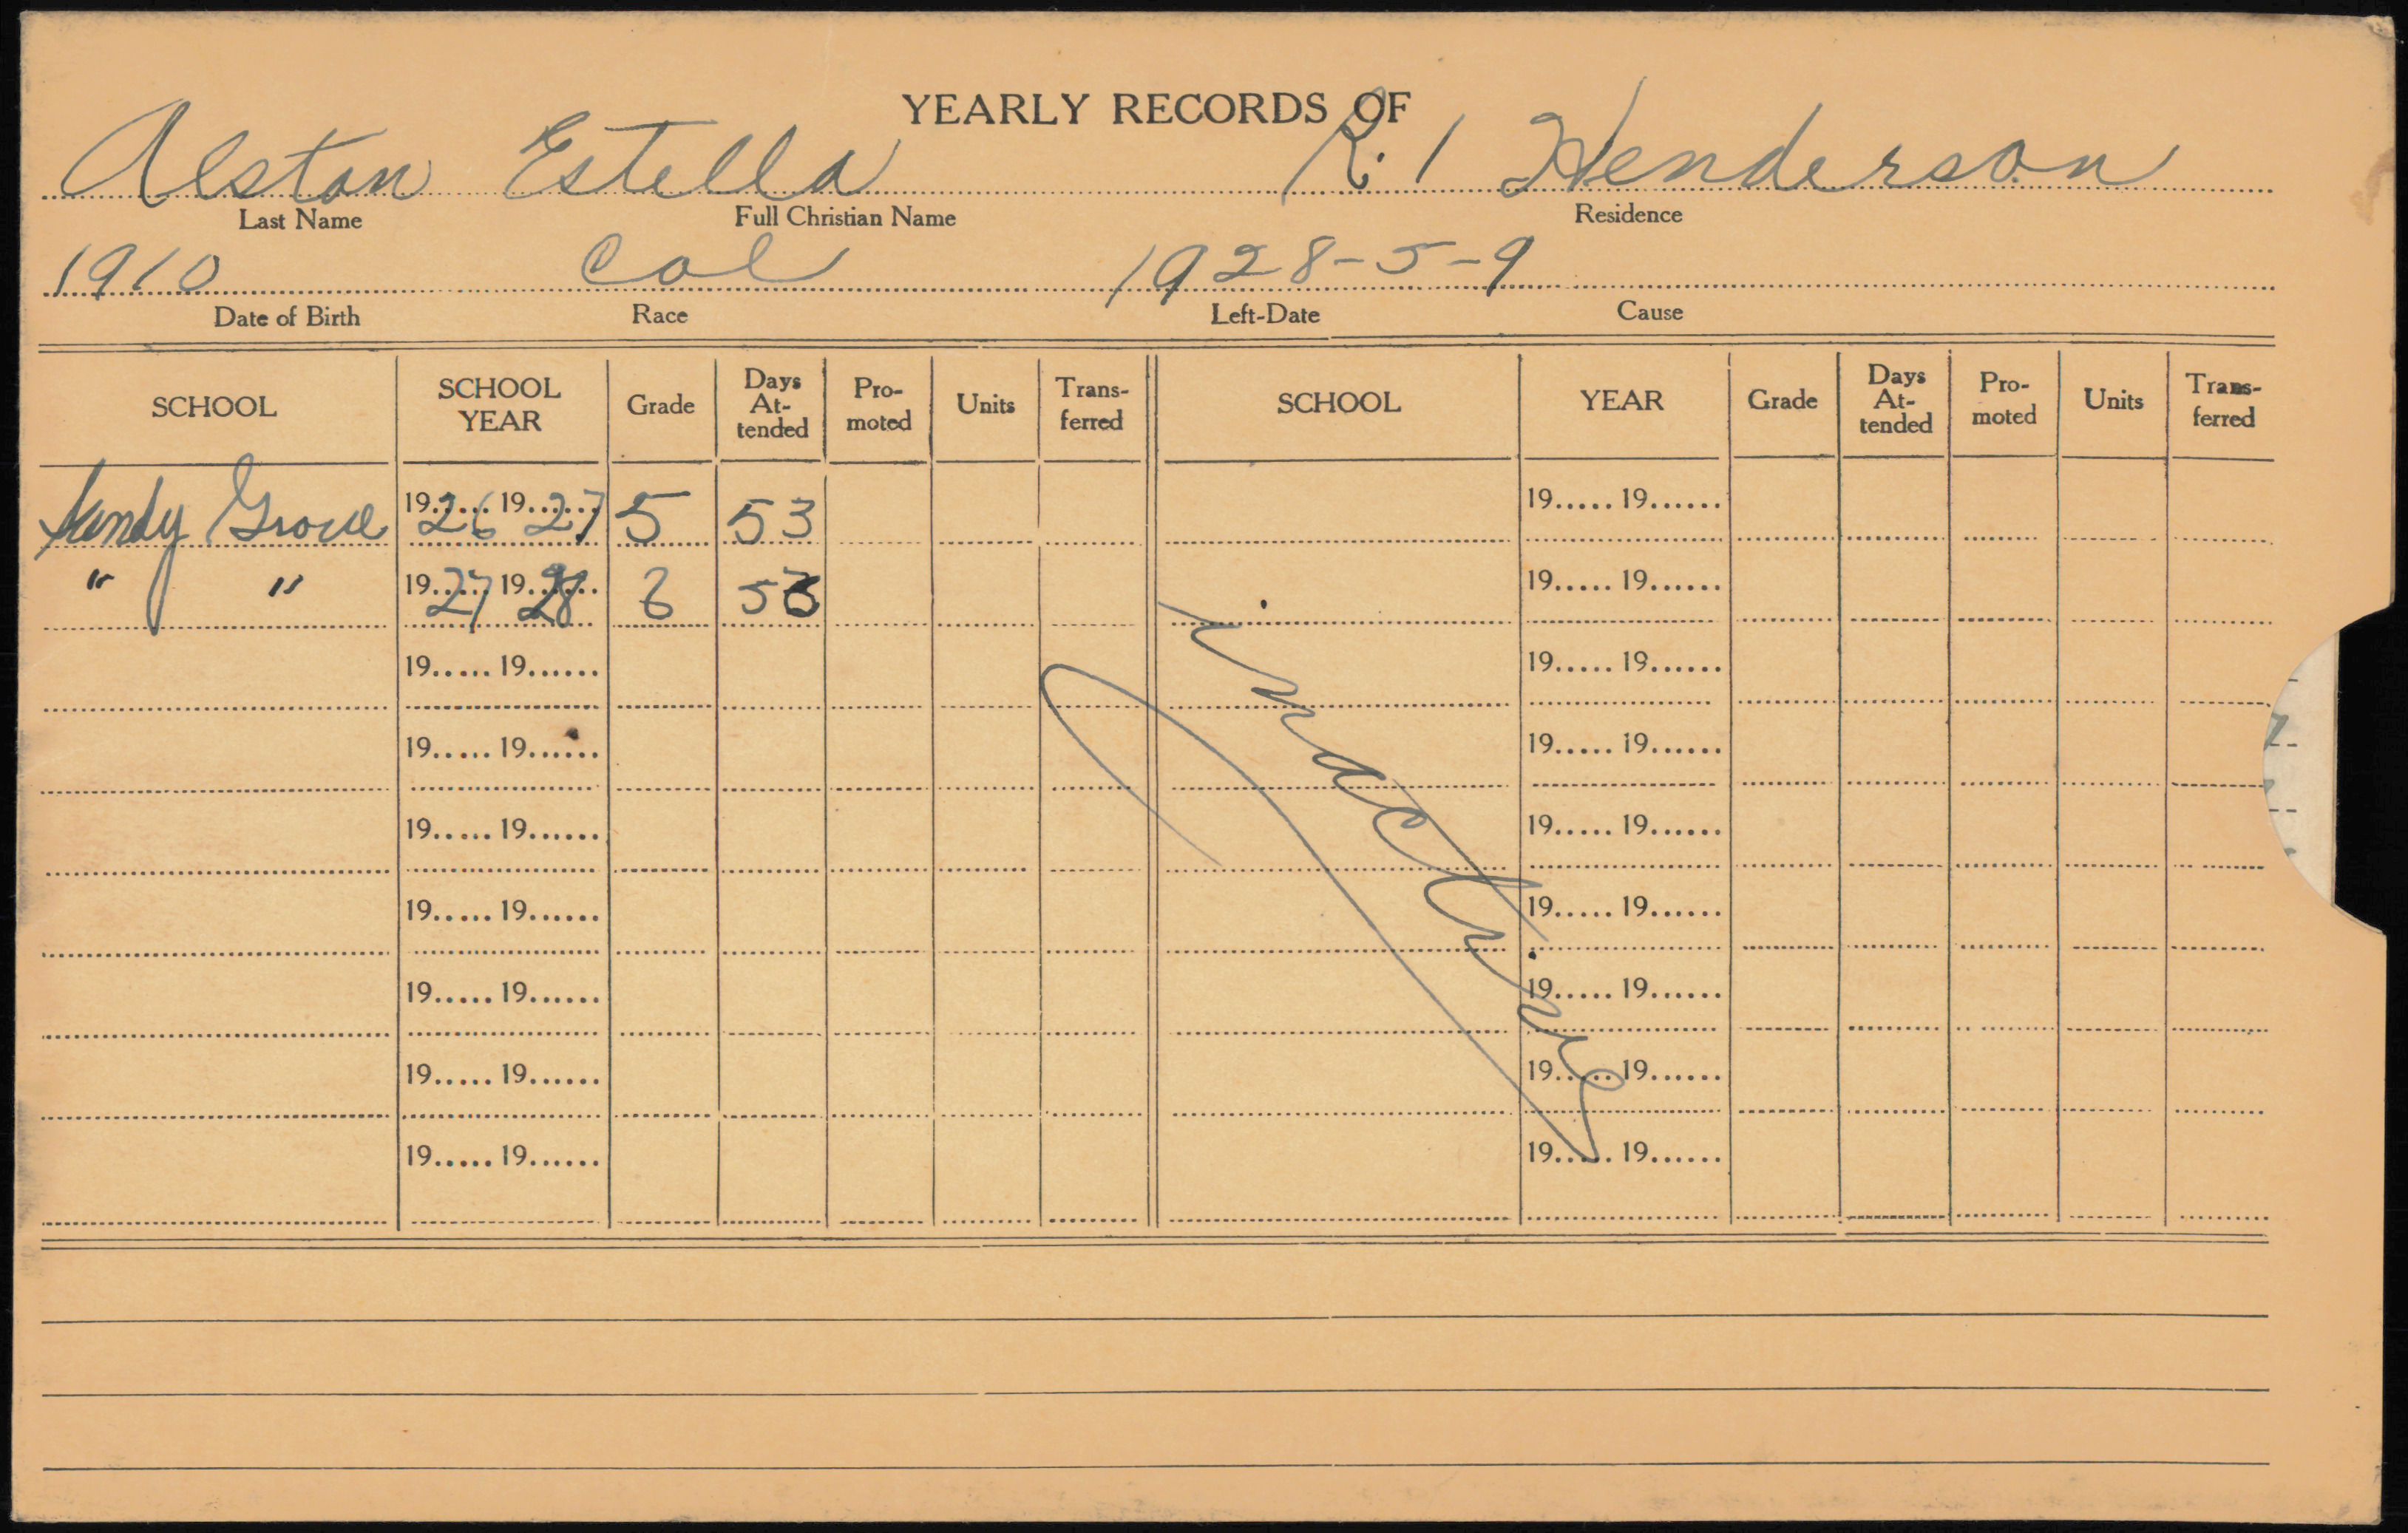 YEARLY RECORDS OF
Alston Estella R. 1 Henderson
Last Name Full Christian Name Residence
1910 Col 1928-5-9
Date of Birth Race Left-Date Cause
SCHOOL SCHOOL YEAR Grade Days At-tended Pro-moted Units Trans-ferred SCHOOL YEAR Grade Days At-tended Pro-moted Units Trans-ferred
Sandy Grove 1926 1927 5 53 19..... 19......
" " 1927 1928 6 19..... 19......
19..... 19...... 19..... 19......
19..... 19...... 19..... 19......
19..... 19...... 19..... 19......
19..... 19...... 19..... 19......
19..... 19...... 19..... 19......
19..... 19...... 19..... 19......
19..... 19...... 19..... 19......
inactive